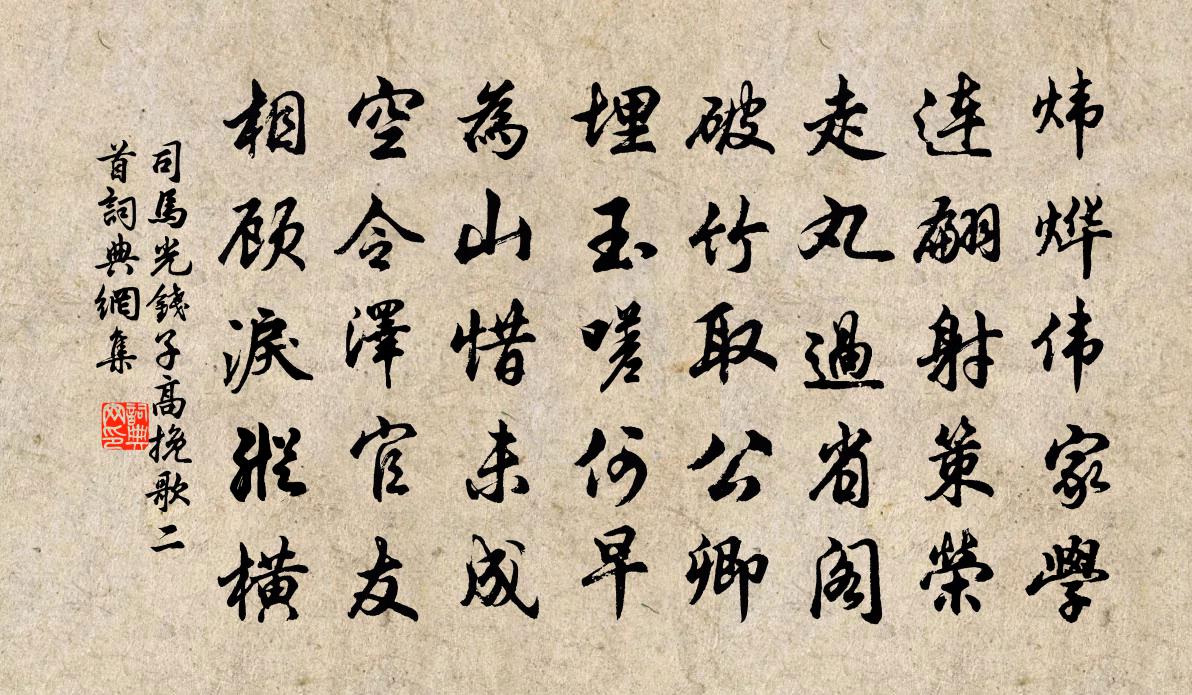 炜烨伟家學
連翩射策榮
走丸過省阁
破竹取公卿
埋玉嗟何早
為山惜未成
空令澤官友
相顾淚縱橫
司馬光錢子高挽歌二
首詞典網集
詞典
网印